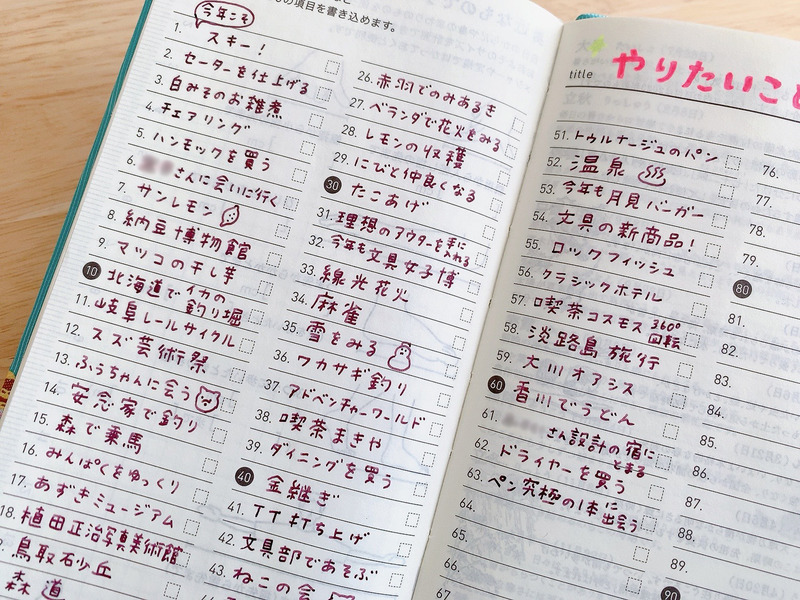 の項目を書き込めます。
今年こそ
1. スキー！
2. セーターを仕上げる
3. 白みそのお雑煮
4. チェアリング
5. ハンモックを買う
6. さんに会いに行く
7. サンレモン
8. 納豆博物館
9. マツコの干し芋
10 北海道でイカの釣り堀
11. 岐阜レールサイクル
12. スズ芸術祭
13. ふうちゃんに会う
14. 安念家で釣り
15. 森で乗馬
16. みんぱくをゆっくり
17. あずきミュージアム
18. 植田正治写真美術館
鳥取石少丘
森道
26. 赤羽でのみあるき
27. ベランダで花火をみる
28. レモンの収穫
29. にびと仲良くなる
30 たこあげ
31. 理想のアウターを手に入れる
32. 今年も文具女子博
33. 線光花火
34. 麻雀
35. 雪をみる
36. ワカサギ釣り
37. アドベンチャーワールド
38. 喫茶まきや
39. ダイニングを買う
40 金継ぎ
41. TTキTち上げ
42. 文具部であそぶ
43. ねこの会
title やりたいこと
51. トゥルナージュのパン
52. 温泉
53. 今年も月見バーガー
54. 文具の新商品！
55. ロックフィッシュ
56. クラシックホテル
57. 喫茶コスモス 360°回転
58. 淡路島旅行
59. 大川オアシス
60 香川でうどん
61. さん設計の宿にとまる
62. ドライヤーを買う
63. ペン究極の1本に出会う
64.
65.
66.
67
76.
77.
78.
79.
80
81.
82.
83.
84.
85.
86.
87.
88.
89.
90